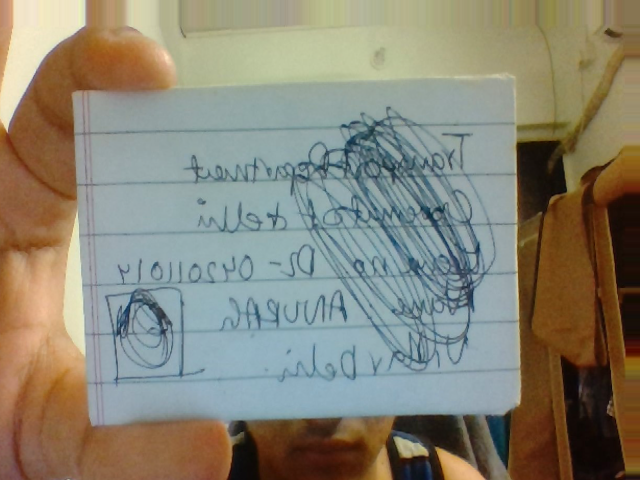 Transport Department
Government of delhi
no. DL-042011014
Name : ANURAG
Delhi.